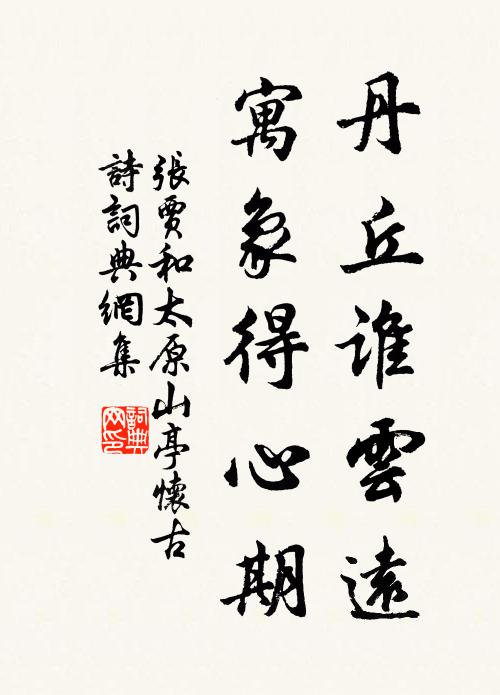 丹丘誰雲遠
寓象得心期
張賈和太原山亭懷古
詩詞典網集
詞典網印